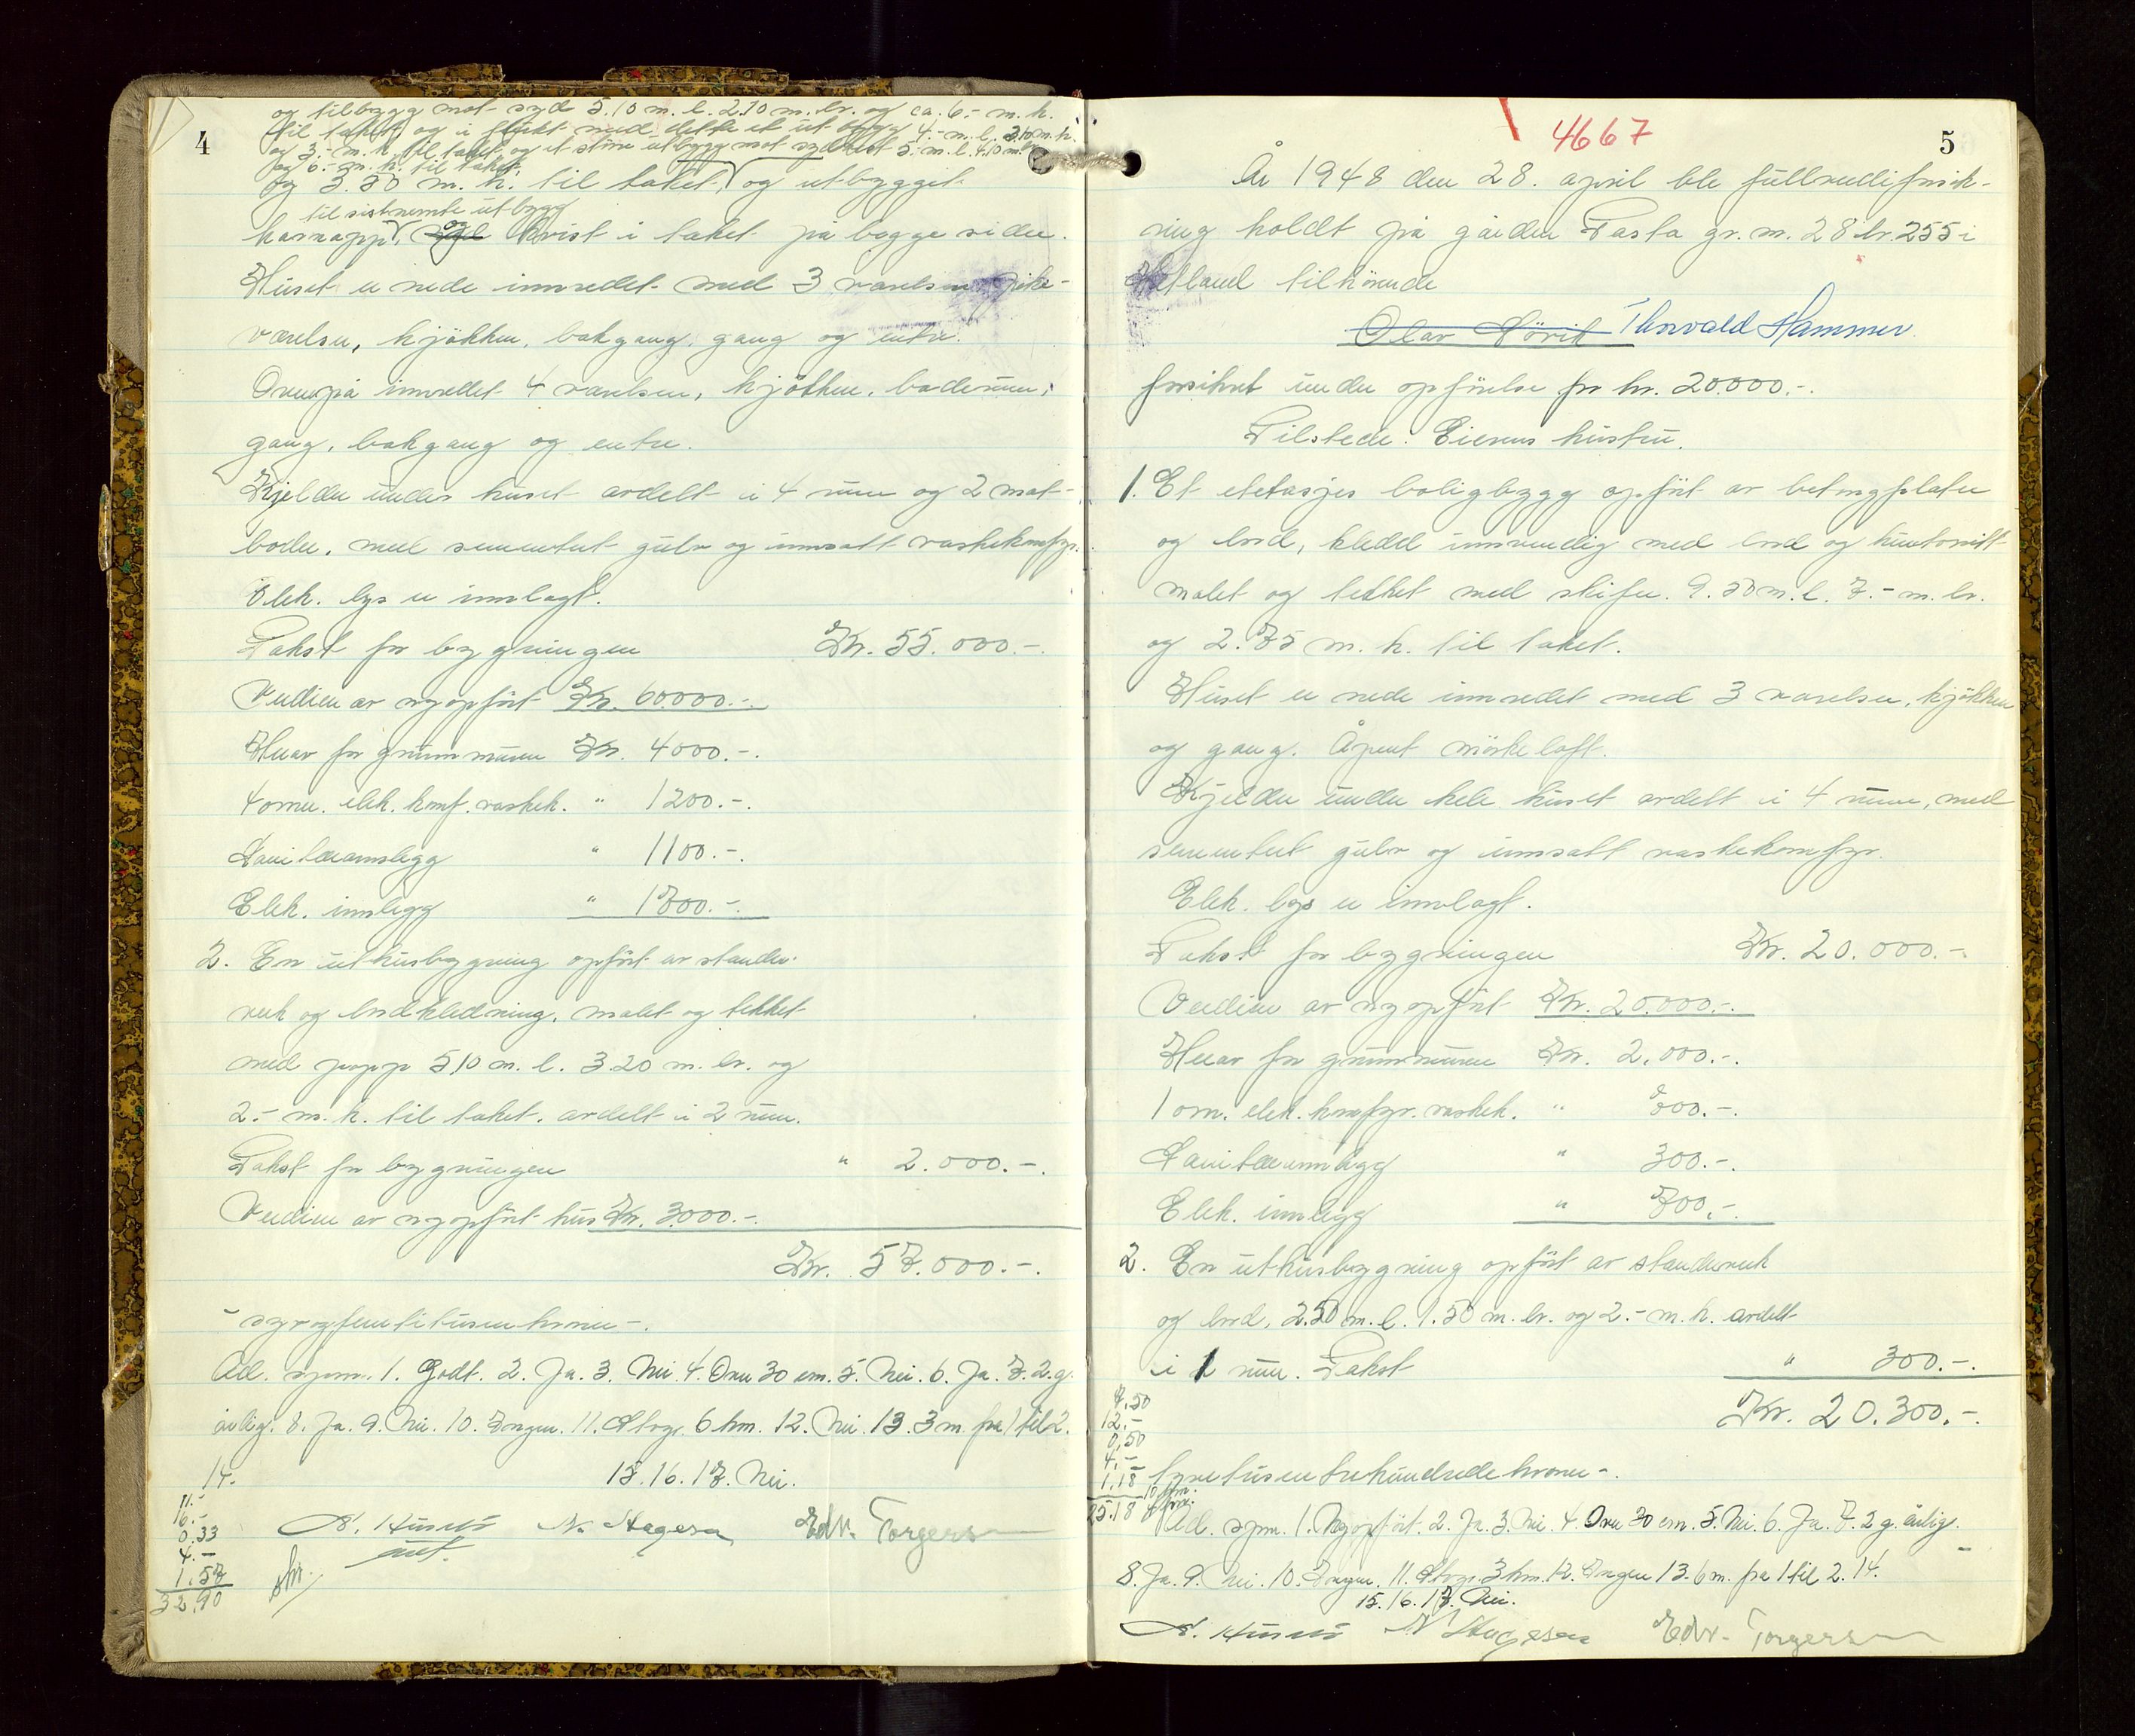 4
og tilbygg mot syd 5.10 m. l. 2.70 m. br. og ca. 6.- m. h.
til taket, og i flukt med dette et utbygg 4.- m. l. 3.10 m. h.
og 3.- m. h. til taket og et större utbygg mot sydvest 5.- m. l. 4.10 m. br.
og 6.- m. h. til taket.
og 3.50 m. h. til taket, og utbygget
til sistnemte utbygg
karnapp, og kvist i taket på begge sider.
Huset er nede innredet med 3 værelser, pike-
værelse, kjøkken, bakgang, gang og entre.
Ovenpå innredet 4 værelser, kjøkken, baderum,
gang, bakgang og entre.
Kjelder under huset avdelt i 4 rum og 2 mat-
boder, med sementert gulv og innsatt vaskekomfyr.
Elek. lys er innlagt.
Takst for bygningen Kr. 55.000.-.
Verdien av nyoppfört Kr. 60.000.-.
Herav for grunnmuren Kr. 4000.-.
4 ovner. elek. komf. vaskek. " 1200.-.
Sanitæranlegg " 1100.-.
Elek. innlegg " 1700.-.
2. En uthusbygning oppfört av stender-
verk og bordkledning, malet og tekket
med papp 5.10 m. l. 3.20 m. br. og
2.- m. h. til taket. avdelt i 2 rum.
Takst for bygningen " 2.000.-.
Verdien av nyoppfört hus Kr. 3000.-.
Kr. 57.000.-.
- syvogfemtitusenkroner -.
Ad. spm. 1. Godt. 2. Ja. 3. Nei. 4. Over 30 cm. 5. Nei. 6. Ja. 7. 2 g.
årlig. 8. Ja. 9. Nei. 10. Ingen. 11. Stvgr. 6 hm. 12. Nei. 13. 3 m fra 1 til 2.
14. 15. 16. 17. Nei.
11.-
16.-
0.33
4.-
1.57
32.90
Edv. Torgersen
4667
5
År 1948 den 28. april ble fullverdiforsik-
ring holdt på gården Tasta gr. nr. 28 br. 255 i
Hetland tilhörende
Olav Hörik Thorvald Hammer
forsikret under oppförelse for kr. 20.000.-.
Tilstede: Eierens hustru.
1. Et etetasjes boligbygg oppfört av betongplater
og bord, kledd innvendig med bord og huntonitt
malet og tekket med skifer. 9.50 m. l. 7.- m. br.
og 2.75 m. h. til taket.
Huset er nede innredet med 3 værelser, kjøkken
og gang. Åpent mörkeloft.
Kjelder under hele huset avdelt i 4 rum, med
sementert gulv og innsatt vaskekomfyr.
Elek. lys er innlagt.
Takst for bygningen Kr. 20.000.-.
Verdien av nyoppfört Kr. 20.000.-.
Herav for grunnmuren Kr. 2.000.-.
1 ovn. elek. komfyr. vaskek. " 700.-.
Sanitærinnlegg " 300.-.
Elek. innlegg " 700.-.
2. En uthusbygning oppfört av stenderverk
og bord, 2.50 m. l. 1.50 m. br. og 2.- m. h. avdelt
i 1 rum. Takst " 300.-.
Kr. 20.300.-.
7.50
12.-
0.50
4.-
1.18
25.18
- tyvetusentrehundredekroner -.
Ad. spm. 1. Nyoppfört. 2. Ja. 3. Nei. 4. Over 30 cm. 5. Nei. 6. Ja. 7. 2 g. årlig.
8. Ja. 9. Nei. 10. Ingen. 11. Stvgr. 3 hm. 12. Ingen 13. 6 m. fra 1 til 2. 14.
15. 16. 17. Nei.
Edv. Torgersen